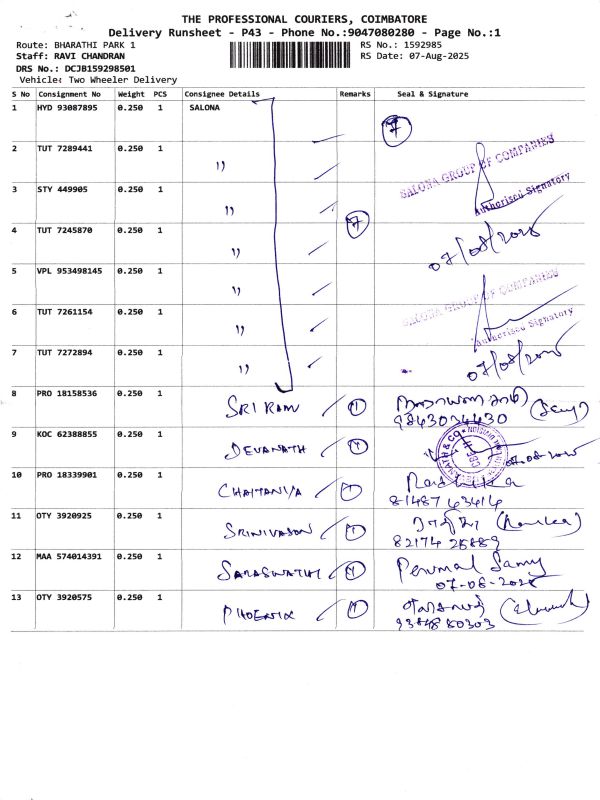 THE PROFESSIONAL COURIERS, COIMBATORE
Delivery Runsheet - P43 - Phone No.:9047080280 - Page No.:1
Route: BHARATHI PARK 1 RS No.: 1592985
Staff: RAVI CHANDRAN RS Date: 07-Aug-2025
DRS No.: DCJB159298501
Vehicle: Two Wheeler Delivery
S No Consignment No Weight PCS Consignee Details Remarks Seal & Signature
1 HYD 93087895 0.250 1 SALONA 7
2 TUT 7289441 0.250 1 " SALONA GROUP OF COMPANIES
3 STY 449905 0.250 1 " 7 Authorised Signatory
4 TUT 7245870 0.250 1 " 07/08/2025
5 VPL 953498145 0.250 1 " SALONA GROUP OF COMPANIES
6 TUT 7261154 0.250 1 " Authorised Signatory
7 TUT 7272894 0.250 1 " 07/08/2025
8 PRO 18158536 0.250 1 SRI RAM 1
9843034430
9 KOC 62388855 0.250 1 DEVANATH 1 07.08.2025
10 PRO 18339901 0.250 1 CHAITANYA 1 Radhika
81487 43414
11 OTY 3920925 0.250 1 SRINIVASAN 1
82174 25889
12 MAA 574014391 0.250 1 SARASWATHI 1 Perumal Samy
07-08-2025
13 OTY 3920575 0.250 1 PHOENIX 1
9384880303